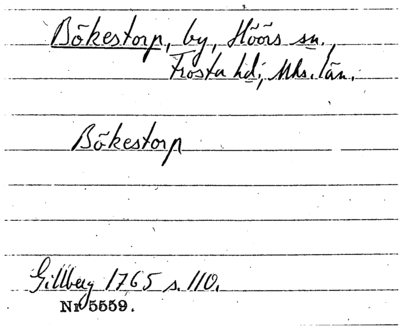 Bökestorp, by, Höörs sn.
Frosta hd; Mhs. län.
Bökestorp
Gillberg 1765 s. 110.
Nr 5559.